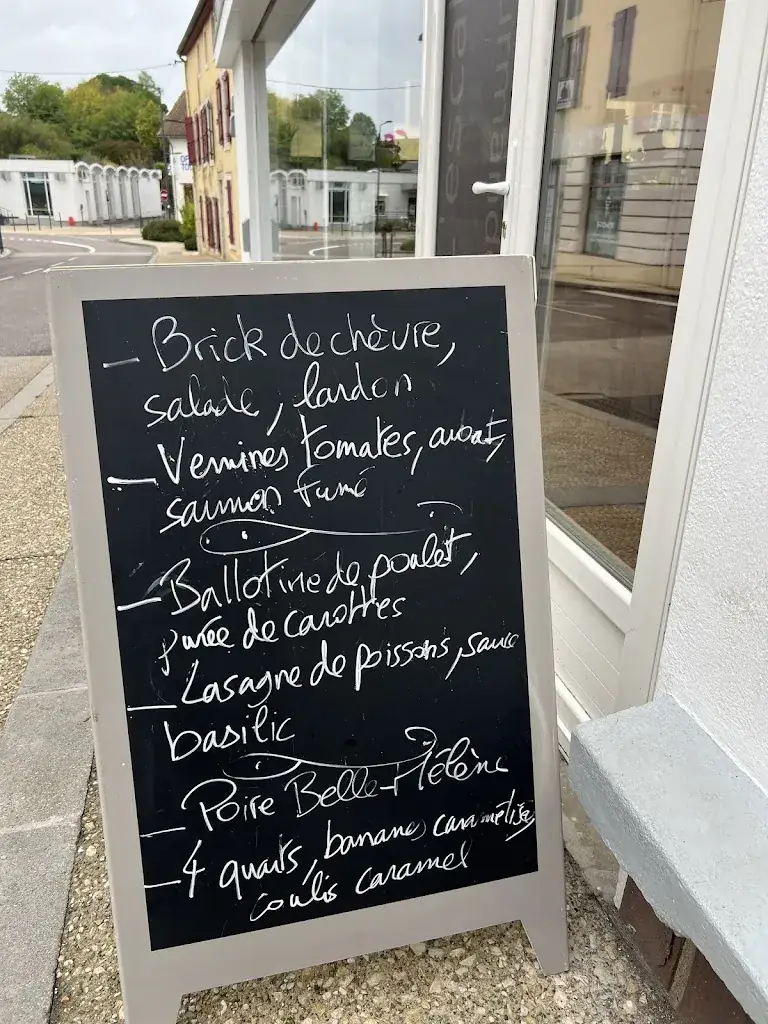 - Brick de chèvre,
salade, lardon
- Verrines tomates, avocat,
saumon fumé
- Ballotine de poulet,
purée de carottes
- Lasagne de poissons, sauce
basilic
- Poire Belle-Hélène
- 4 quarts, bananes caramélisées
coulis caramel